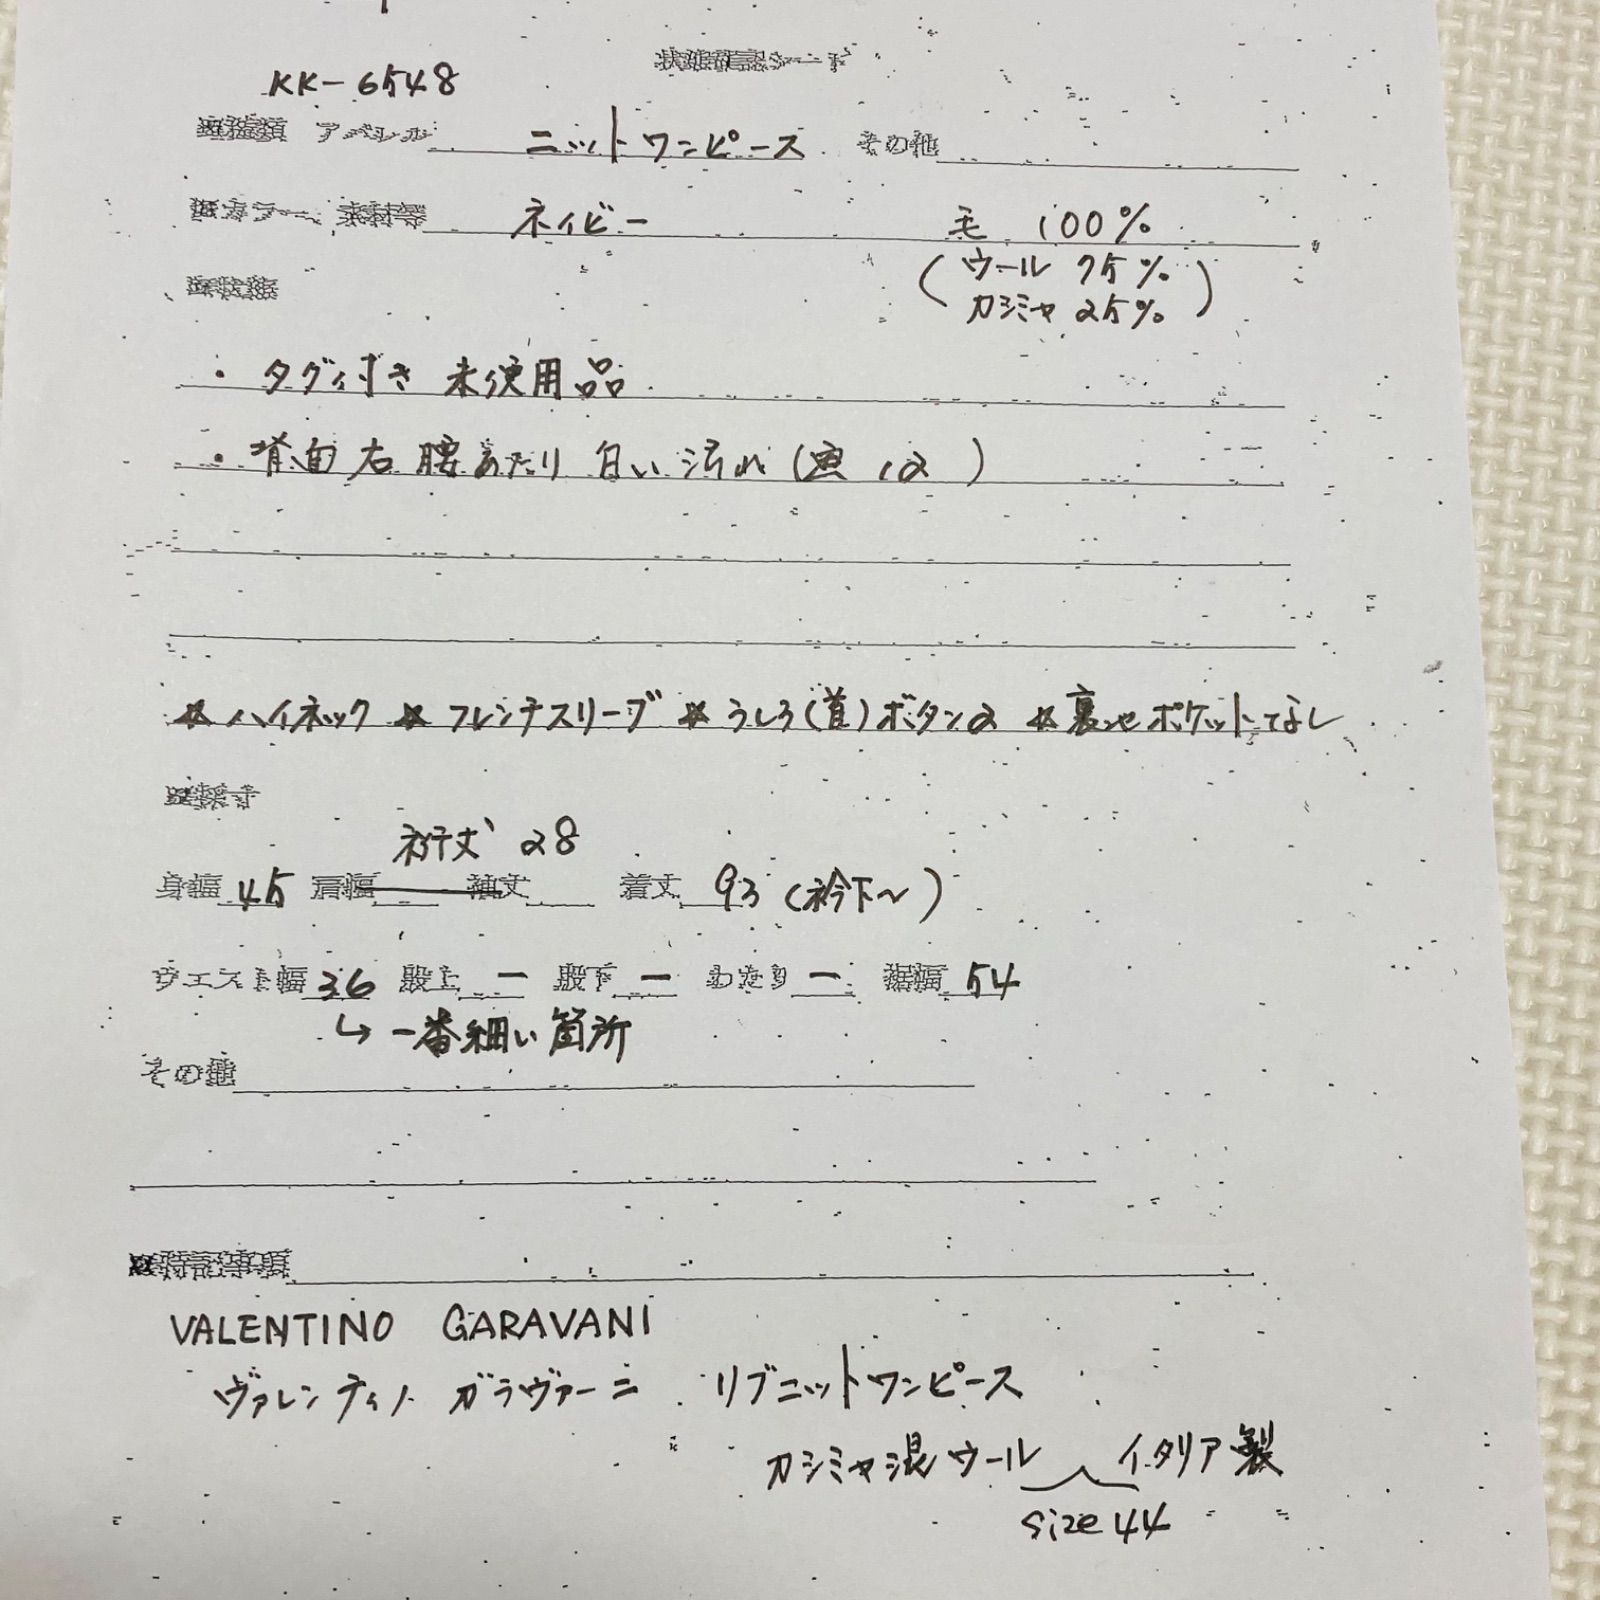 状態確認シート
KK-6548
■種類 アパレル ニットワンピース その他
■カラー、素材等 ネイビー 毛 100%
(ウール 75%
カシミヤ 25%)
■状態
・タグ付き 未使用品
・背面右腰あたり 白い汚れ(画12)
☆ハイネック ☆フレンチスリーブ ☆うしろ(首)ボタン2 ☆裏地ポケットなし
■採寸
裄丈 28
身幅 45 肩幅 袖丈 着丈 93(衿下~)
ウエスト幅 36 股上 ー 股下 ー わたり ー 裾幅 54
↳ 一番細い箇所
その他
■特記事項
VALENTINO GARAVANI
ヴァレンティノ ガラヴァーニ リブニットワンピース
カシミヤ混ウール イタリア製
size 44